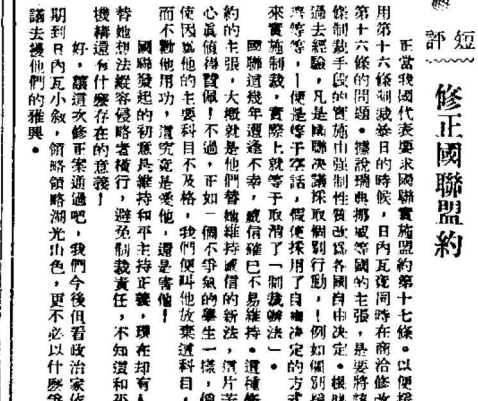 短評
修正國聯盟約
正當我國代表要求國聯實施盟約第十七條，以便採
用第十六條制裁暴日的時候，日內瓦竟同時在商洽修改
第十六條的問題。據說瑞典挪威等國的主張，是要將該
條制裁手段的實施由強制性質改爲各國自由決定。根據
過去經驗，凡是國聯決議採取個別行動，例如個別援
等等，便是等于空話，假使採用了自由決定的方式
來實施制裁，實際上就等于取消了「制裁辦法」。
國聯這幾年遭逢不幸，威信確已不易維持。這種修
約的主張，大概就是他們替她維持威信的新法，這片苦
心眞値得贊佩！不過，正如一個不爭氣的學生一樣，倘
使因爲他的主要科目不及格，我們便叫他放棄這科目，
而不歡他用功，這究竟是愛他，還是害他！
國聯發起的初意是維持和平主持正義，現在却有人
替她想法縱容侵略者橫行，避免制裁責任，不知道和平
機構還有什麼存在的意義！
好，讓這次修正案通過吧，我們今後但看政治家依
期到日內瓦小敘，領略領略湖光山色，更不必以什麼爭
議去擾他們的雅興。